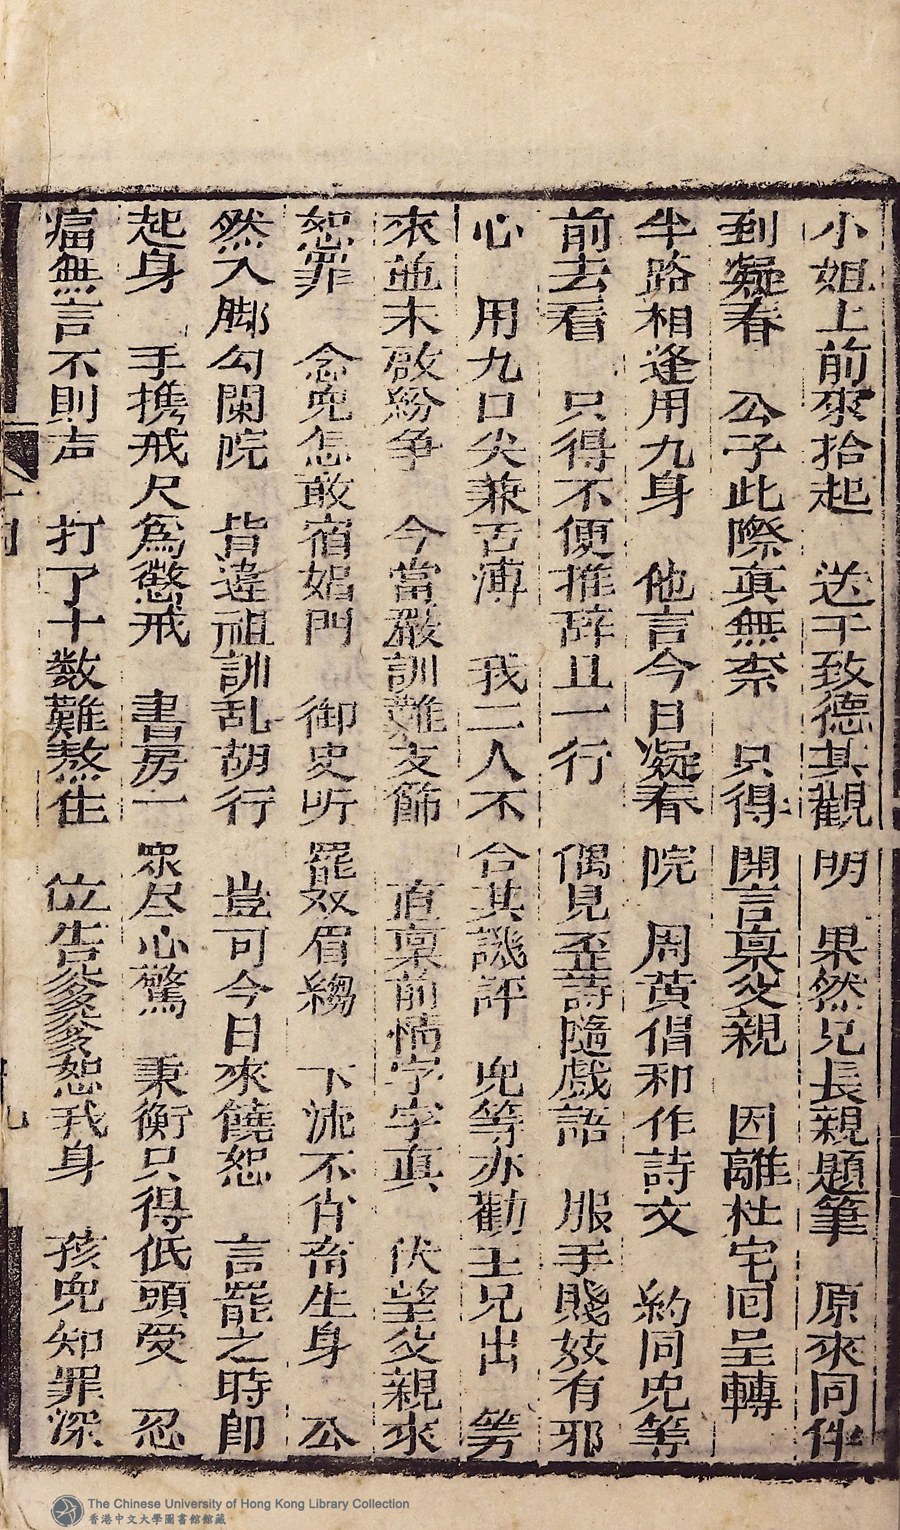 小姐上前來拾起　送于致德其觀明　果然兄長親題筆　原來同伴
到凝春　公子此際真無柰　只得開言稟父親　因離杜宅回呈轉
半路相逢用九身　他言今日凝春院　周黃倡和作詩文　約同児等
前去看　只得不便推辞且一行　偶見歪詩隨戲語　服手賤妓有邪
心　用九口尖兼舌薄　我二人不合其譏評　児等亦勸王兄出　等
來並未啟紛争　今當嚴訓難支飾　直稟前情字字真　伏望父親來
恕罪　念児怎敢宿娼門　御史听罷双眉縐　下流不肖畜生身　公
然入脚勾闌院　背違祖訓乱胡行　豈可今日來饒恕　言罷之時即
起身　手携戒尺爲懲戒　書房一眾尽心驚　秉衡只得低頭受　忍
痛無言不則声　打了十数難熬住　位告爹爹恕我身　孩児知罪深
The Chinese University of Hong Kong Library Collection
香港中文大學圖書館館藏